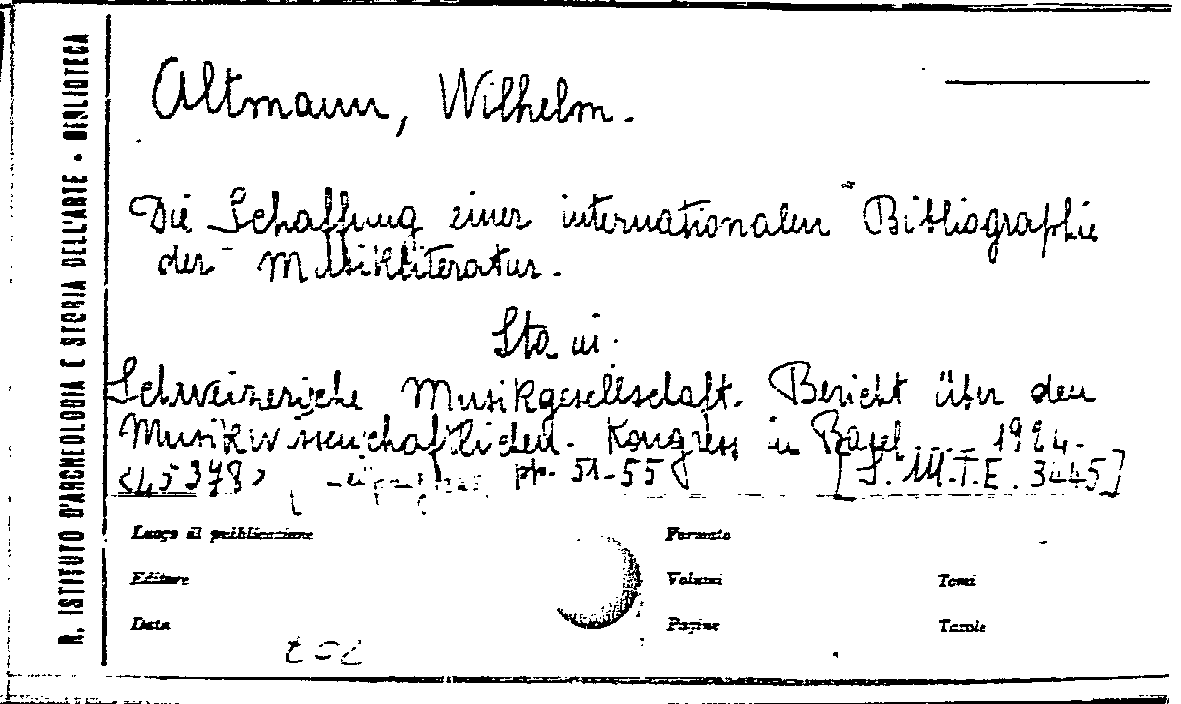 R. ISTITUTO D'ARCHEOLOGIA E STORIA DELL'ARTE - BIBLIOTECA
Altmann, Wilhelm.
Die Schaffung einer internationalen Bibliographie
der Musikliteratur.
Sta in:
Schweizerische Musikgesellschaft. Bericht über den
Musikwissenschaftlichen Kongress in Basel ... 1924.
<45378> pp. 51-55 [S. M.T.E. 3445]
Luogo di pubblicazione Formato
Editore Volumi Tomi
Data Pagine Tavole